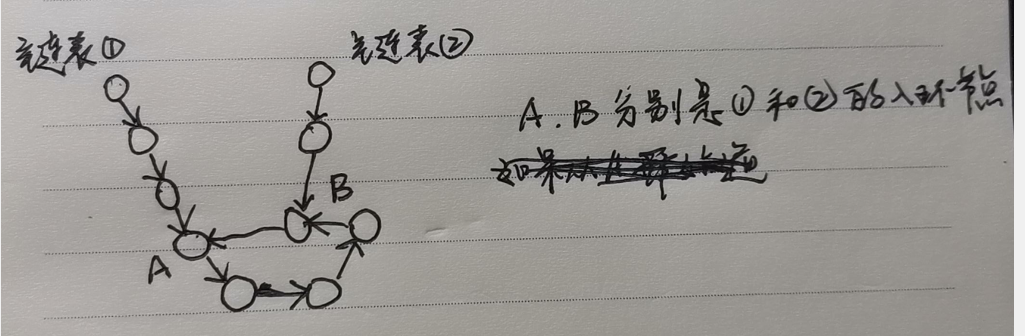 主链表① 主链表②
A.B分别是①和②的入环节点
B
A